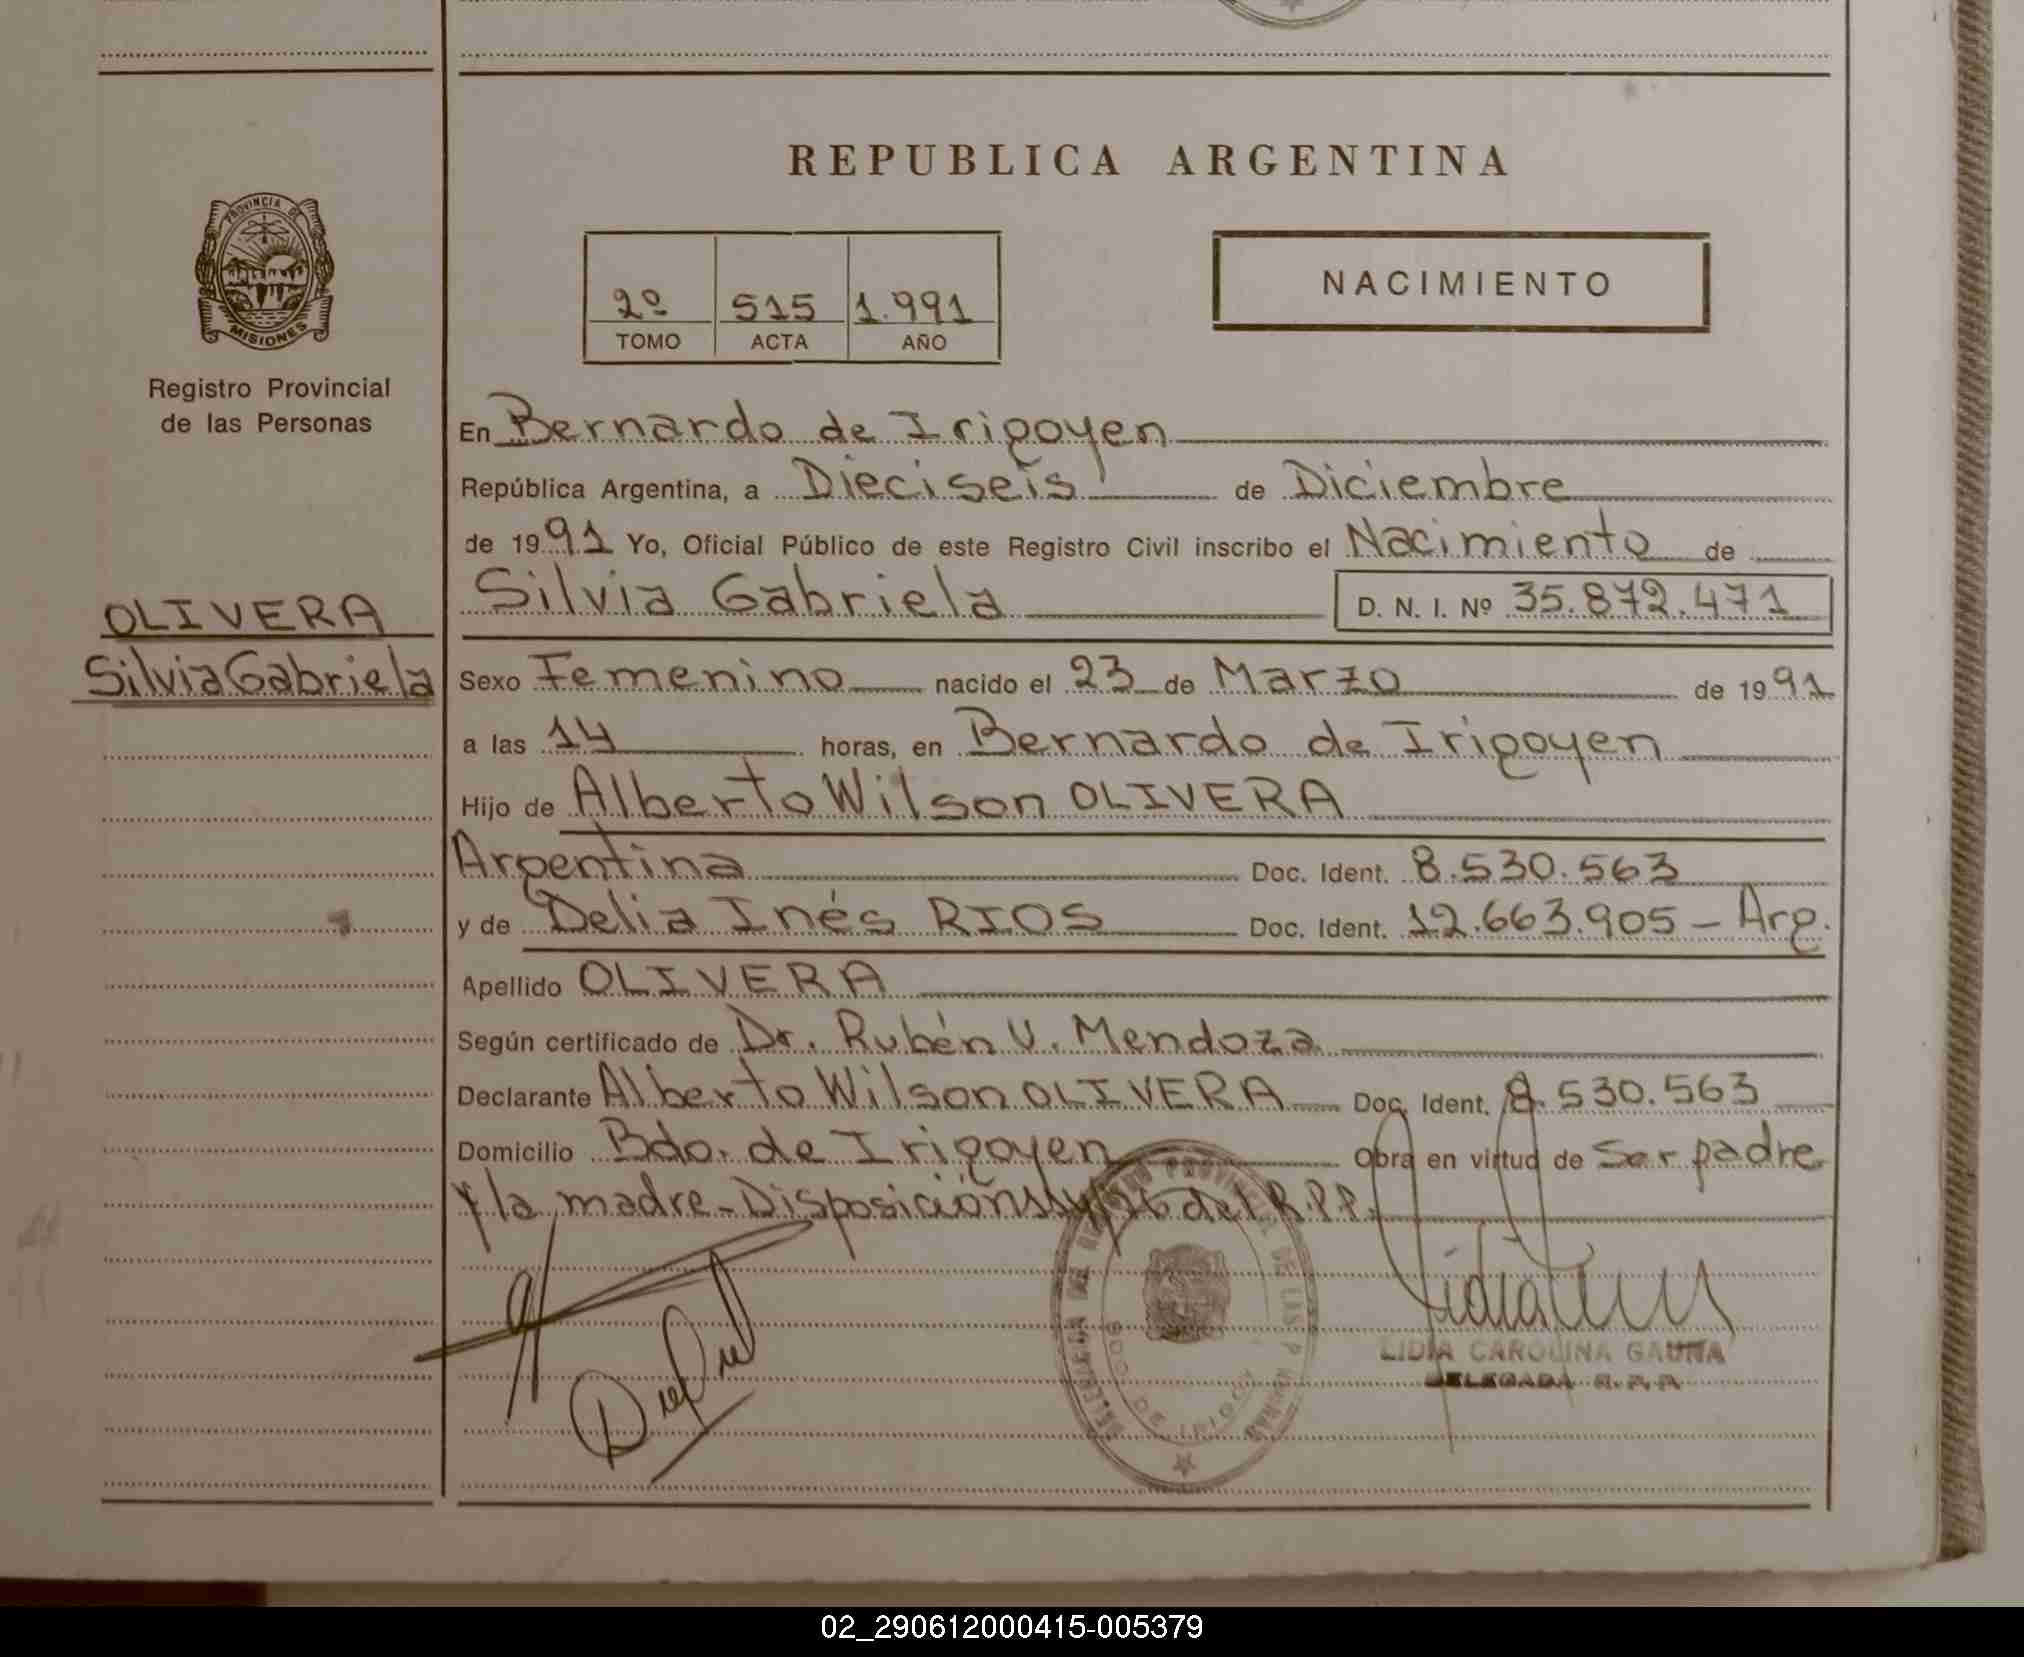 REPUBLICA ARGENTINA
PROVINCIA DE
MISIONES
Registro Provincial
de las Personas
2º 515 1.991
TOMO ACTA AÑO
NACIMIENTO
En Bernardo de Irigoyen
República Argentina, a Dieciseis de Diciembre
de 1991 Yo, Oficial Público de este Registro Civil inscribo el Nacimiento de
Silvia Gabriela D. N. I. Nº 35.872.471
OLIVERA
Silvia Gabriela
Sexo Femenino nacido el 23 de Marzo de 1991
a las 14 horas, en Bernardo de Irigoyen
Hijo de Alberto Wilson OLIVERA
Argentina Doc. Ident. 8.530.563
y de Delia Inés RIOS Doc. Ident. 12.663.905 - Arg.
Apellido OLIVERA
Según certificado de Dr. Rubén V. Mendoza
Declarante Alberto Wilson OLIVERA Doc. Ident. 8.530.563
Domicilio Bdo. de Irigoyen Obra en virtud de Ser padre
y la madre - Disposición del R.P.P.
LIDIA CAROLINA GAUNA
DELEGADA R.P.P.
02_290612000415-005379